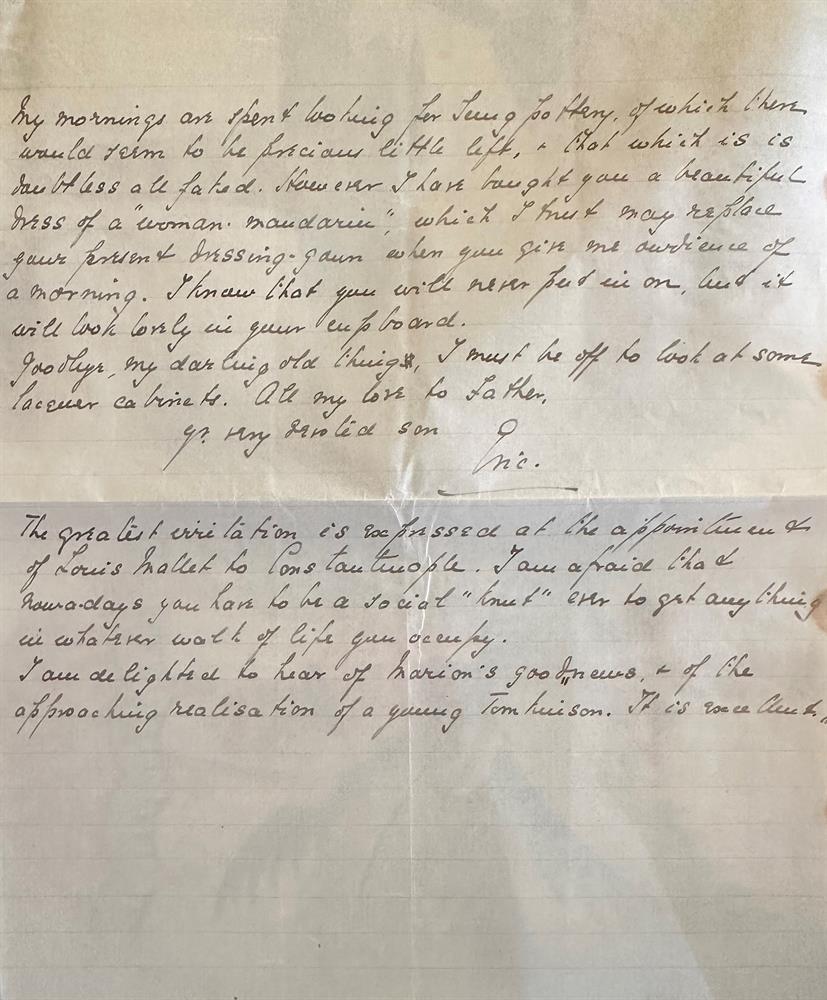 My mornings are spent looking for Sung pottery, of which there
would seem to be precious little left, + that which is is
doubtless all faked. However I have bought you a beautiful
dress of a "woman-mandarin", which I trust may replace
your present dressing-gown when you give me audience of
a morning. I know that you will never put in on, but it
will look lovely in your cupboard.
Goodbye, my darling old thing, I must be off to look at some
lacquer cabinets. All my love to Father,
yr. very devoted son
Eric.
The greatest irritation is expressed at the appointment
of Louis Mallet to Constantinople. I am afraid that
nowa-days you have to be a social "knut" ever to get anything
in whatever walk of life you occupy.
I am delighted to hear of Marion's good news, + of the
approaching realisation of a young Tomkinson. It is excellent,